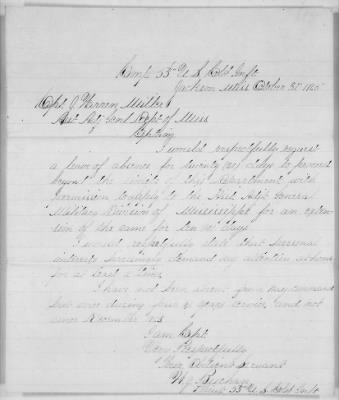 Camp 55th U S Cold Infty
Jackson Miss October 31st 1865
Capt J. Warren Miller
Asst Adj Genl Dept of Miss
Captain
I would respectfully request
a leave of absence for twenty (20) days to proceed
beyond the limits of this Department with
permission to apply to the Asst Adjt General
Military Division of Mississippi for an exten-
sion of the same for ten days
I would respectfully state that personal
interests demand my attention at home
for at least a time
I have not been absent from my command
but once during four years service and not
since November
I am Capt
Very Respectfully
Your Obedient Servant
Lieut 55th U S Cold Infty